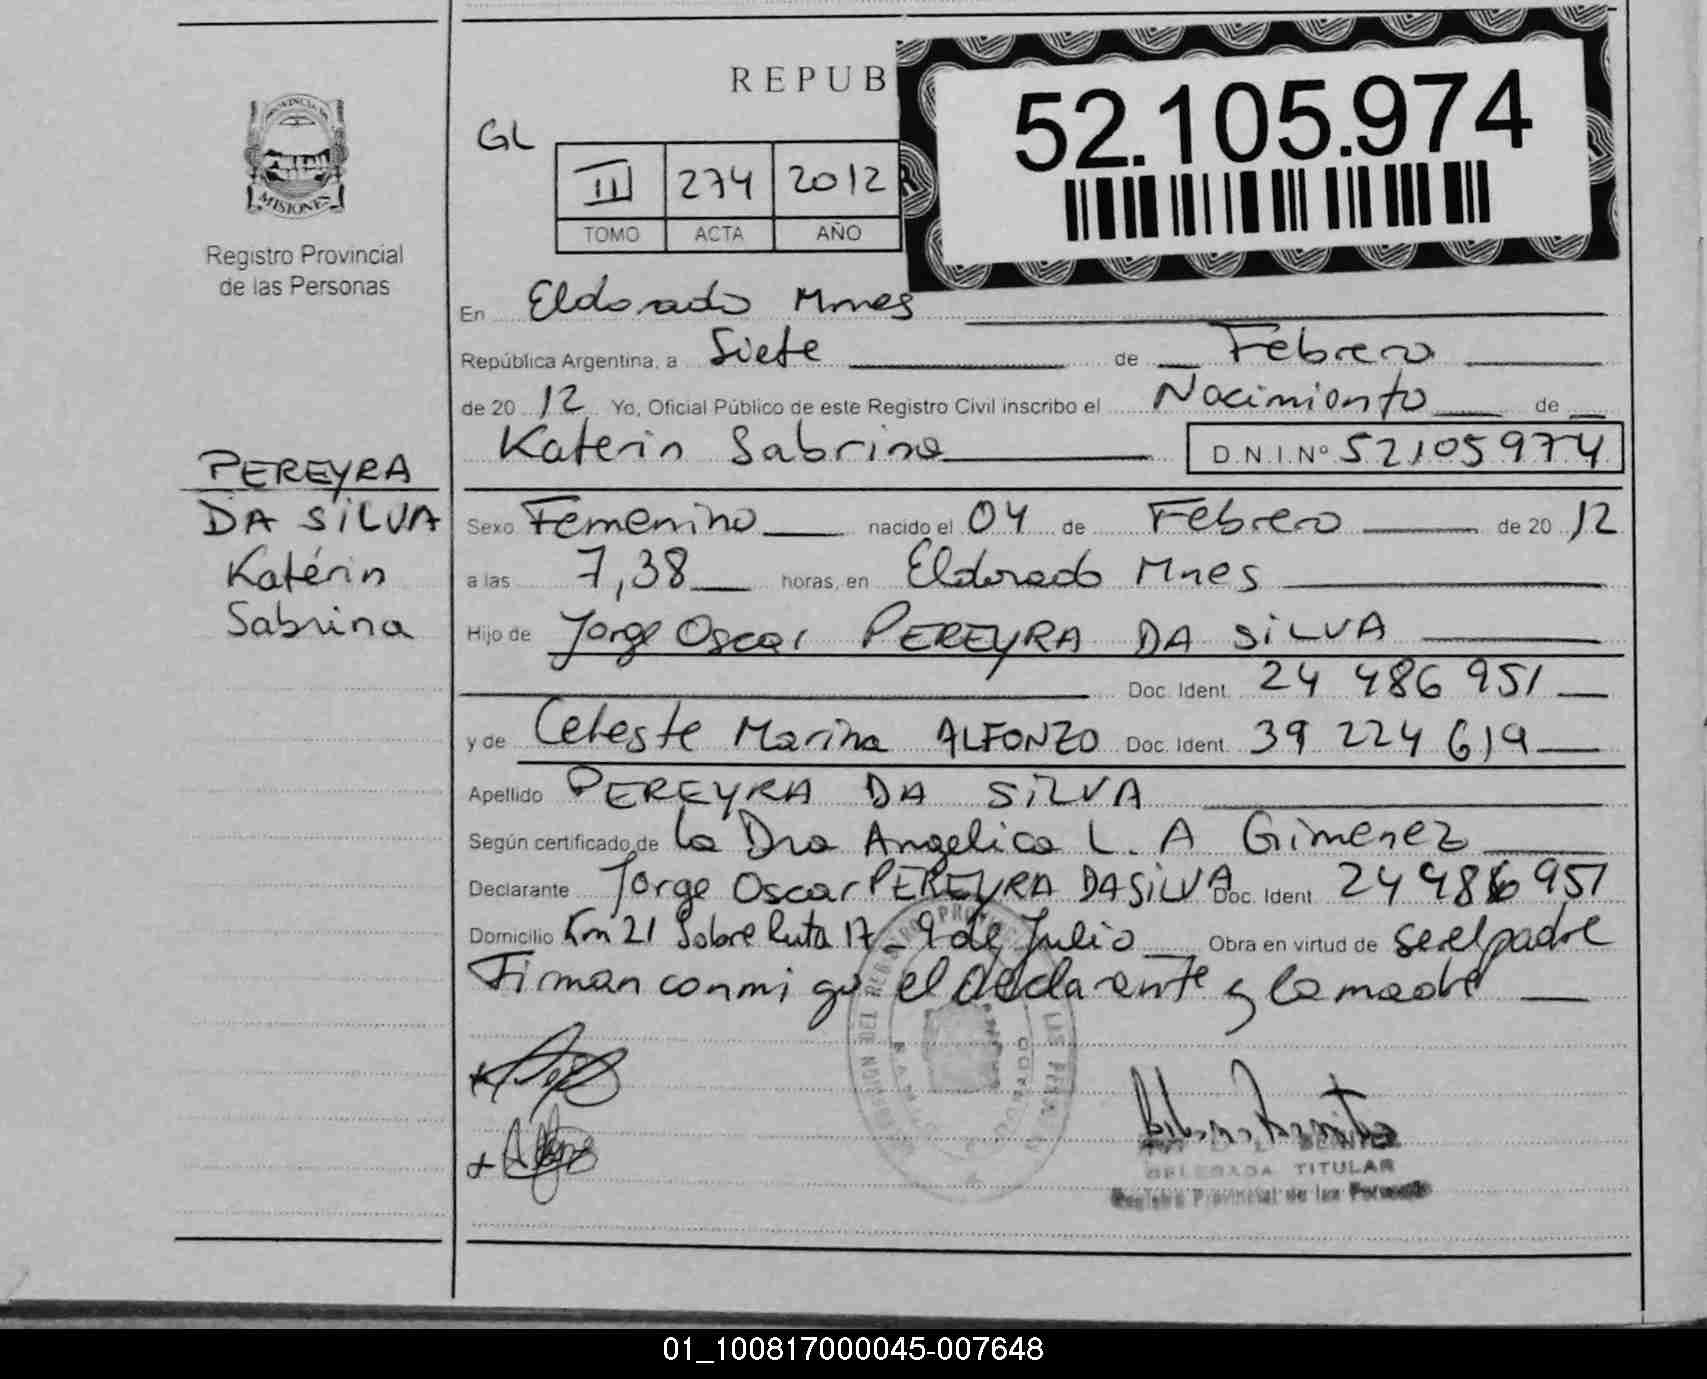 REPUB
52.105.974
PROVINCIA DE
MISIONES
Registro Provincial
de las Personas
GL
III 274 2012
TOMO ACTA AÑO
En Eldorado Mnes
República Argentina, a Siete de Febrero
de 20 12 Yo, Oficial Público de este Registro Civil inscribo el Nacimiento de
Katerin Sabrina D.N.I.Nº 52105974
PEREYRA
DA SILVA
Katérin
Sabrina
Sexo Femenino nacido el 04 de Febrero de 20 12
a las 7,38 horas, en Eldorado Mnes
Hijo de Jorge Oscar PEREYRA DA SILVA
Doc. Ident. 24 486 951
y de Celeste Marina ALFONZO Doc. Ident. 39 224 619
Apellido PEREYRA DA SILVA
Según certificado de la Dra Angelica L. A Gimenez
Declarante Jorge Oscar PEREYRA DA SILVA Doc. Ident. 24 486 951
Domicilio Km 21 Sobre Ruta 17 - 9 de Julio Obra en virtud de ser el padre
Firman conmigo el declarante y la madre
DELEGADA TITULAR
Registro Provincial de las Personas
01_100817000045-007648